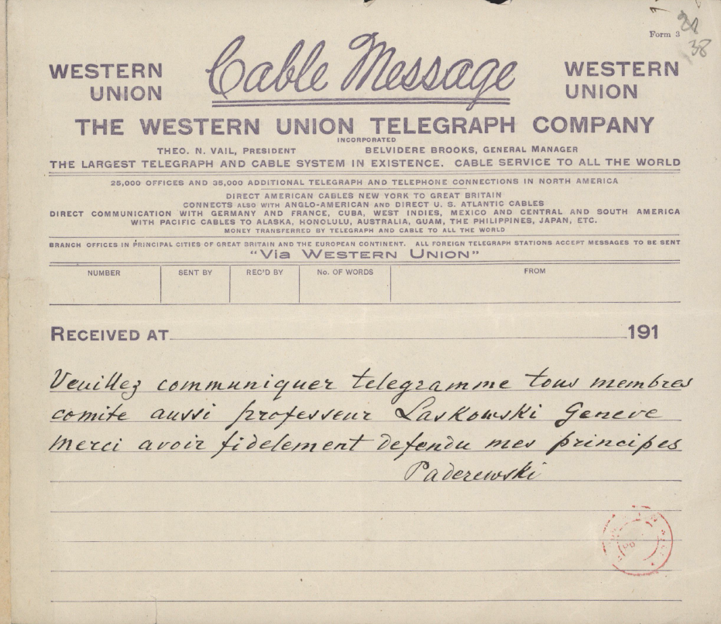 Form 3
21
38
WESTERN UNION
Cable Message
WESTERN UNION
THE WESTERN UNION TELEGRAPH COMPANY
INCORPORATED
THEO. N. VAIL, PRESIDENT BELVIDERE BROOKS, GENERAL MANAGER
THE LARGEST TELEGRAPH AND CABLE SYSTEM IN EXISTENCE. CABLE SERVICE TO ALL THE WORLD
25,000 OFFICES AND 35,000 ADDITIONAL TELEGRAPH AND TELEPHONE CONNECTIONS IN NORTH AMERICA
DIRECT AMERICAN CABLES NEW YORK TO GREAT BRITAIN
CONNECTS ALSO WITH ANGLO-AMERICAN AND DIRECT U. S. ATLANTIC CABLES
DIRECT COMMUNICATION WITH GERMANY AND FRANCE, CUBA, WEST INDIES, MEXICO AND CENTRAL AND SOUTH AMERICA
WITH PACIFIC CABLES TO ALASKA, HONOLULU, AUSTRALIA, GUAM, THE PHILIPPINES, JAPAN, ETC.
MONEY TRANSFERRED BY TELEGRAPH AND CABLE TO ALL THE WORLD
BRANCH OFFICES IN PRINCIPAL CITIES OF GREAT BRITAIN AND THE EUROPEAN CONTINENT. ALL FOREIGN TELEGRAPH STATIONS ACCEPT MESSAGES TO BE SENT
"VIA WESTERN UNION"
NUMBER SENT BY REC'D BY No. OF WORDS FROM
RECEIVED AT 191
Veuillez communiquer telegramme tous membres
comite aussi professeur Laskowski Geneve
merci avoir fidelement defendu mes principes
Paderewski